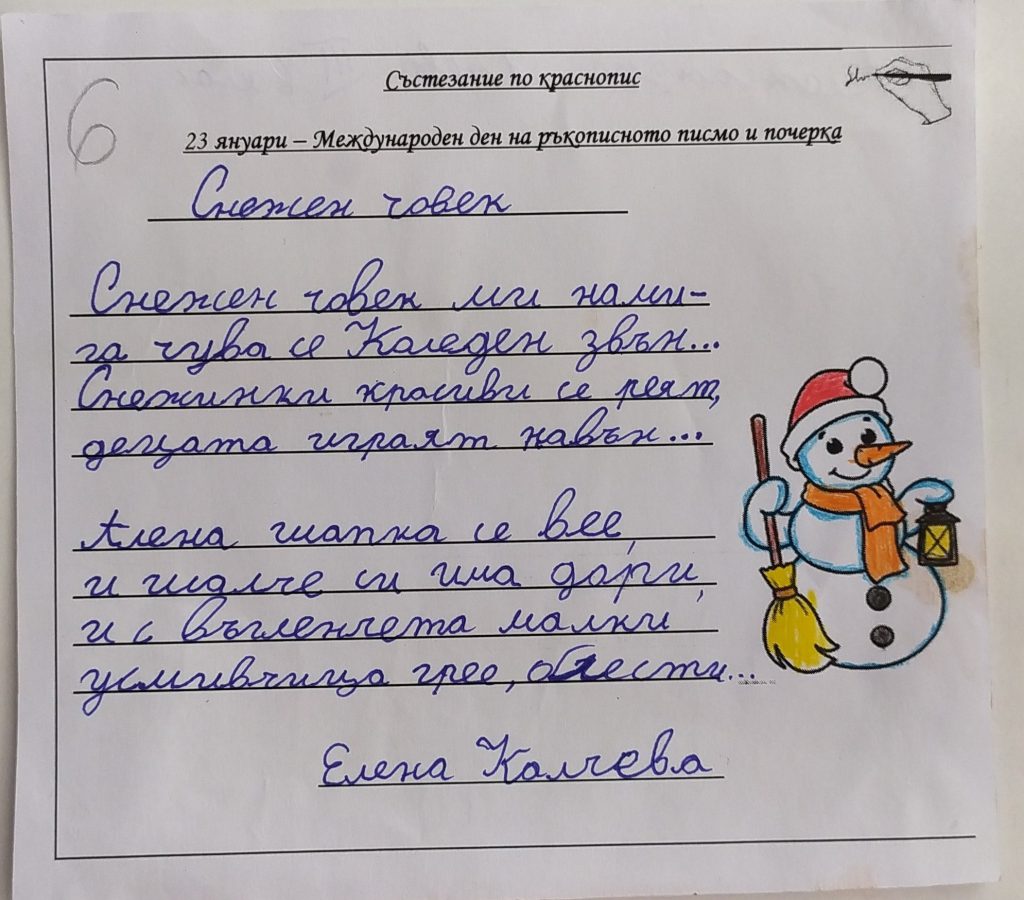 6
Състезание по краснопис
23 януари – Международен ден на ръкописното писмо и почерка
Снежен човек
Снежен човек ми нами-
га чува се Коледен звън...
Снежинки красиви се реят,
децата играят навън...
Алена шапка се вее,
и шалче си има дори,
и с въгленчета малки
усмивчица грее, блести...
Елена Калчева